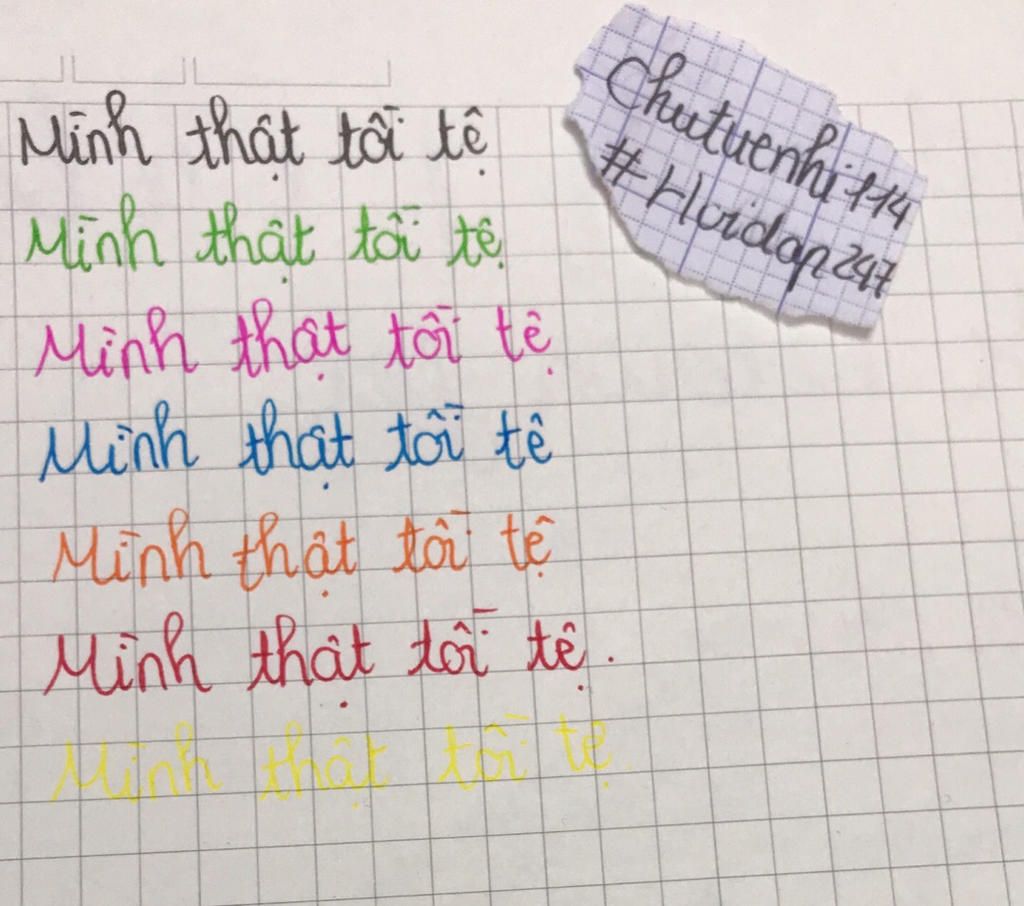 Mình thật tồi tệ
Mình thật tồi tệ
Mình thật tồi tệ
Mình thật tồi tê
Mình thật tồi tệ
Mình thật tồi tệ.
Mình thật tồi tệ
Chutuenhi114
#Hoidap247